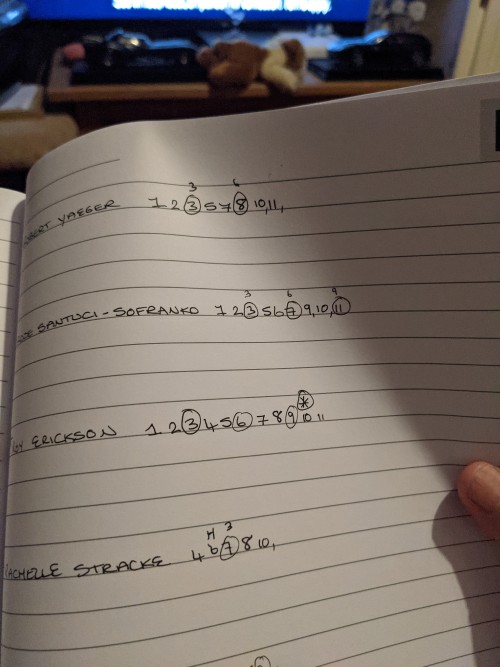 3 6
YAEGER 1 2 3 5 7 8 10, 11,
3 6 9
SANTUCI - SOFRANKO 1 2 3 5 6 7 9, 10, 11
*
ERICKSON 1 2 3 4 5 6 7 8 9 10 11
H 3
STRACKE 4 6 7 8 10,